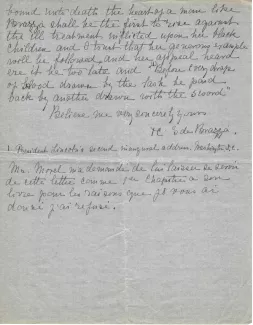 bound unto death the heart of a man like
Brazza shall be the first to rise against
the ill treatment inflicted upon her black
children and I trust that her generous example
will be followed and her appeal heard
ere it be too late and "before every drop
of blood drawn by the lash be paid
back by another drawn with the sword"
Believe me very sincerely yours
C de Brazza.
1. President Lincoln's second inaugural address. Washington D.C.
Mr. Morel m'a demandé de lui laisser se servir
de cette lettre comme 1er Chapitre a son
livre pour les raisons que je vous ai
donné j'ai refusé.